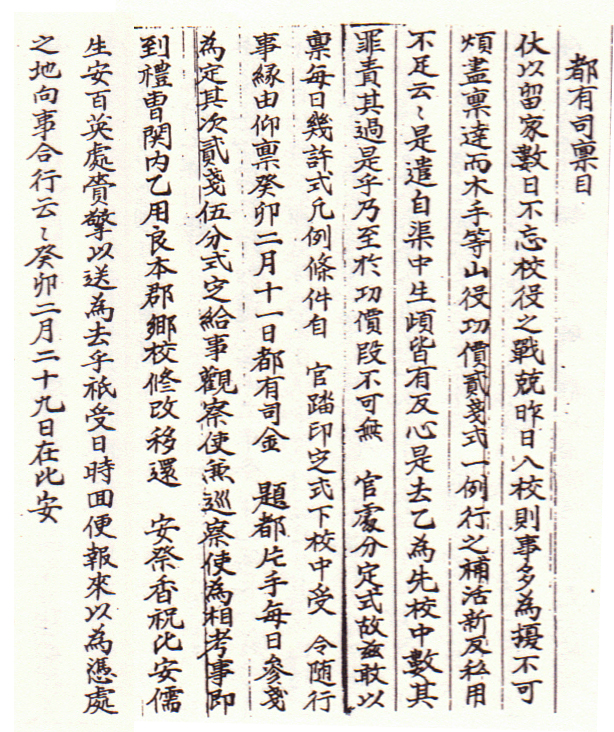 都有司稟目
伏以留家數日不忘校役之戰兢昨日入校則事多為擾不可
煩盡稟達而木手等山役功價貳戔式一例行之補活新反私用
不足云〻是遣自渠中生頉皆有反心是去乙為先校中數其
罪責其過是乎乃至於功價段不可無 官處分定式故玆敢以
稟每日幾許式凡例條件自 官踏印定式下校中受 令隨行
事緣由仰稟癸卯二月十一日都有司金 題都片手每日參戔
為定其次貳戔伍分式定給事觀察使兼巡察使為相考事即
到禮曹関內乙用良本郡鄉校修改移還 安祭香祝比安儒
生安百英處賫擎以送為去乎祇受日時回便報來以為憑處
之地向事合行云〻癸卯二月二十九日在比安